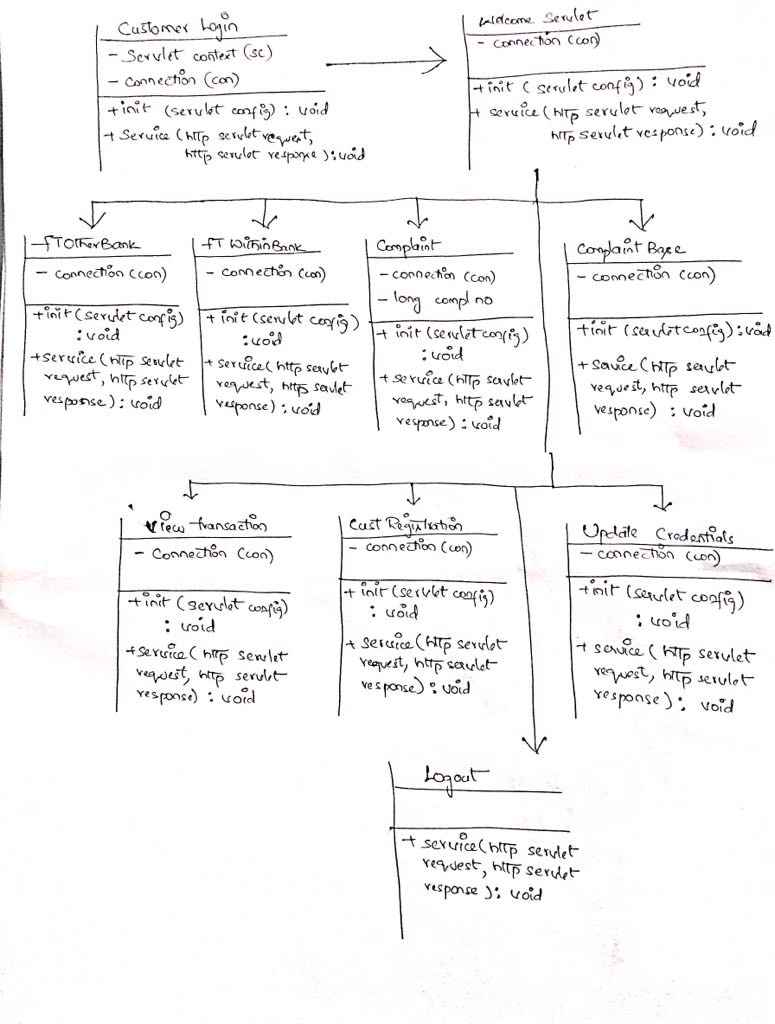 Customer Login
- Servlet context (sc)
- Connection (con)
+init (servlet config) : void
+ Service (http servlet request,
http servlet response) : void
Welcome Servlet
- connection (con)
+init ( servlet config) : void
+ service (http servlet request,
http servlet response) : void
fTOtherBank
- connection (con)
+init (servlet config)
: void
+service (http servlet
request, http servlet
response) : void
fT WithinBank
- connection (con)
+ init (servlet config)
: void
+ service (http servlet
request, http servlet
response) : void
Complaint
- connection (con)
- long compl no
+ init (servlet config)
: void
+ service (http servlet
request, http servlet
response) : void
Complaint Base
- connection (con)
+init (servlet config) : void
+ service (http servlet
request, http servlet
response) : void
View transaction
- Connection (con)
+init (servlet config)
: void
+service ( http servlet
request, http servlet
response) : void
Cust Registration
- connection (con)
+ init (servlet config)
: void
+ service (http servlet
request, http servlet
response) : void
Update Credentials
- connection (con)
+init (servlet config)
: void
+ service ( http servlet
request, http servlet
response) : void
Logout
+ service (http servlet
request, http servlet
response ) : void